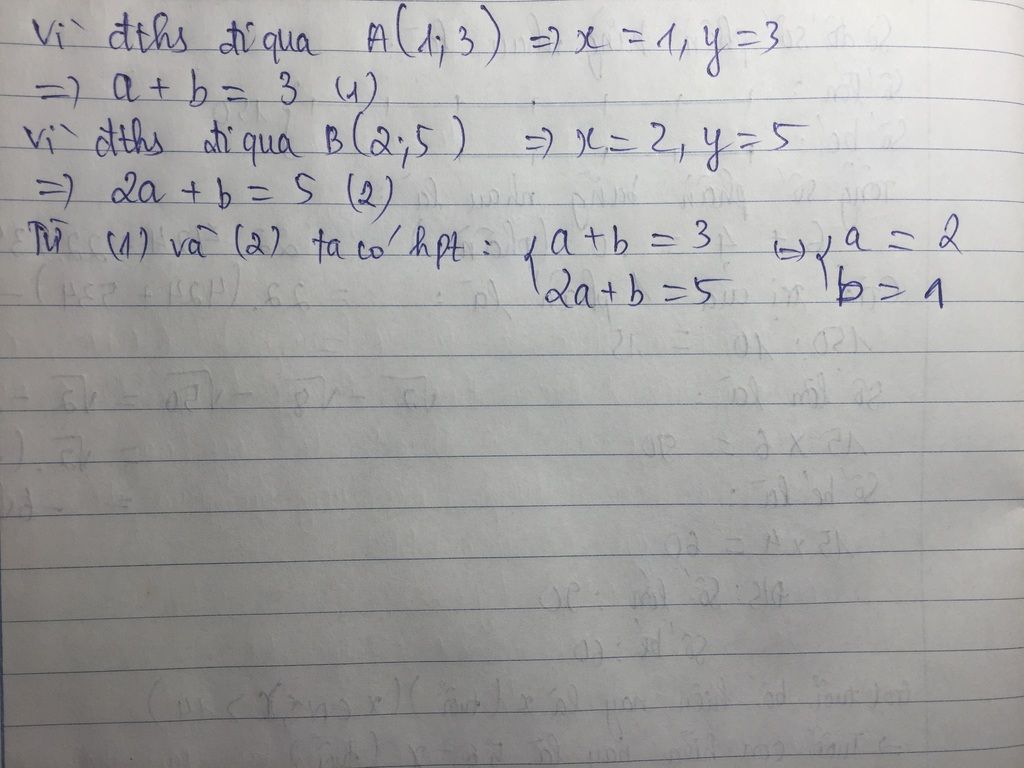 Vì đths đi qua A(1;3) => x = 1, y = 3
=> a + b = 3 (1)
Vì đths đi qua B(2;5) => x = 2, y = 5
=> 2a + b = 5 (2)
Từ (1) và (2) ta có hpt: { a + b = 3 <=> { a = 2
2a + b = 5 b = 1